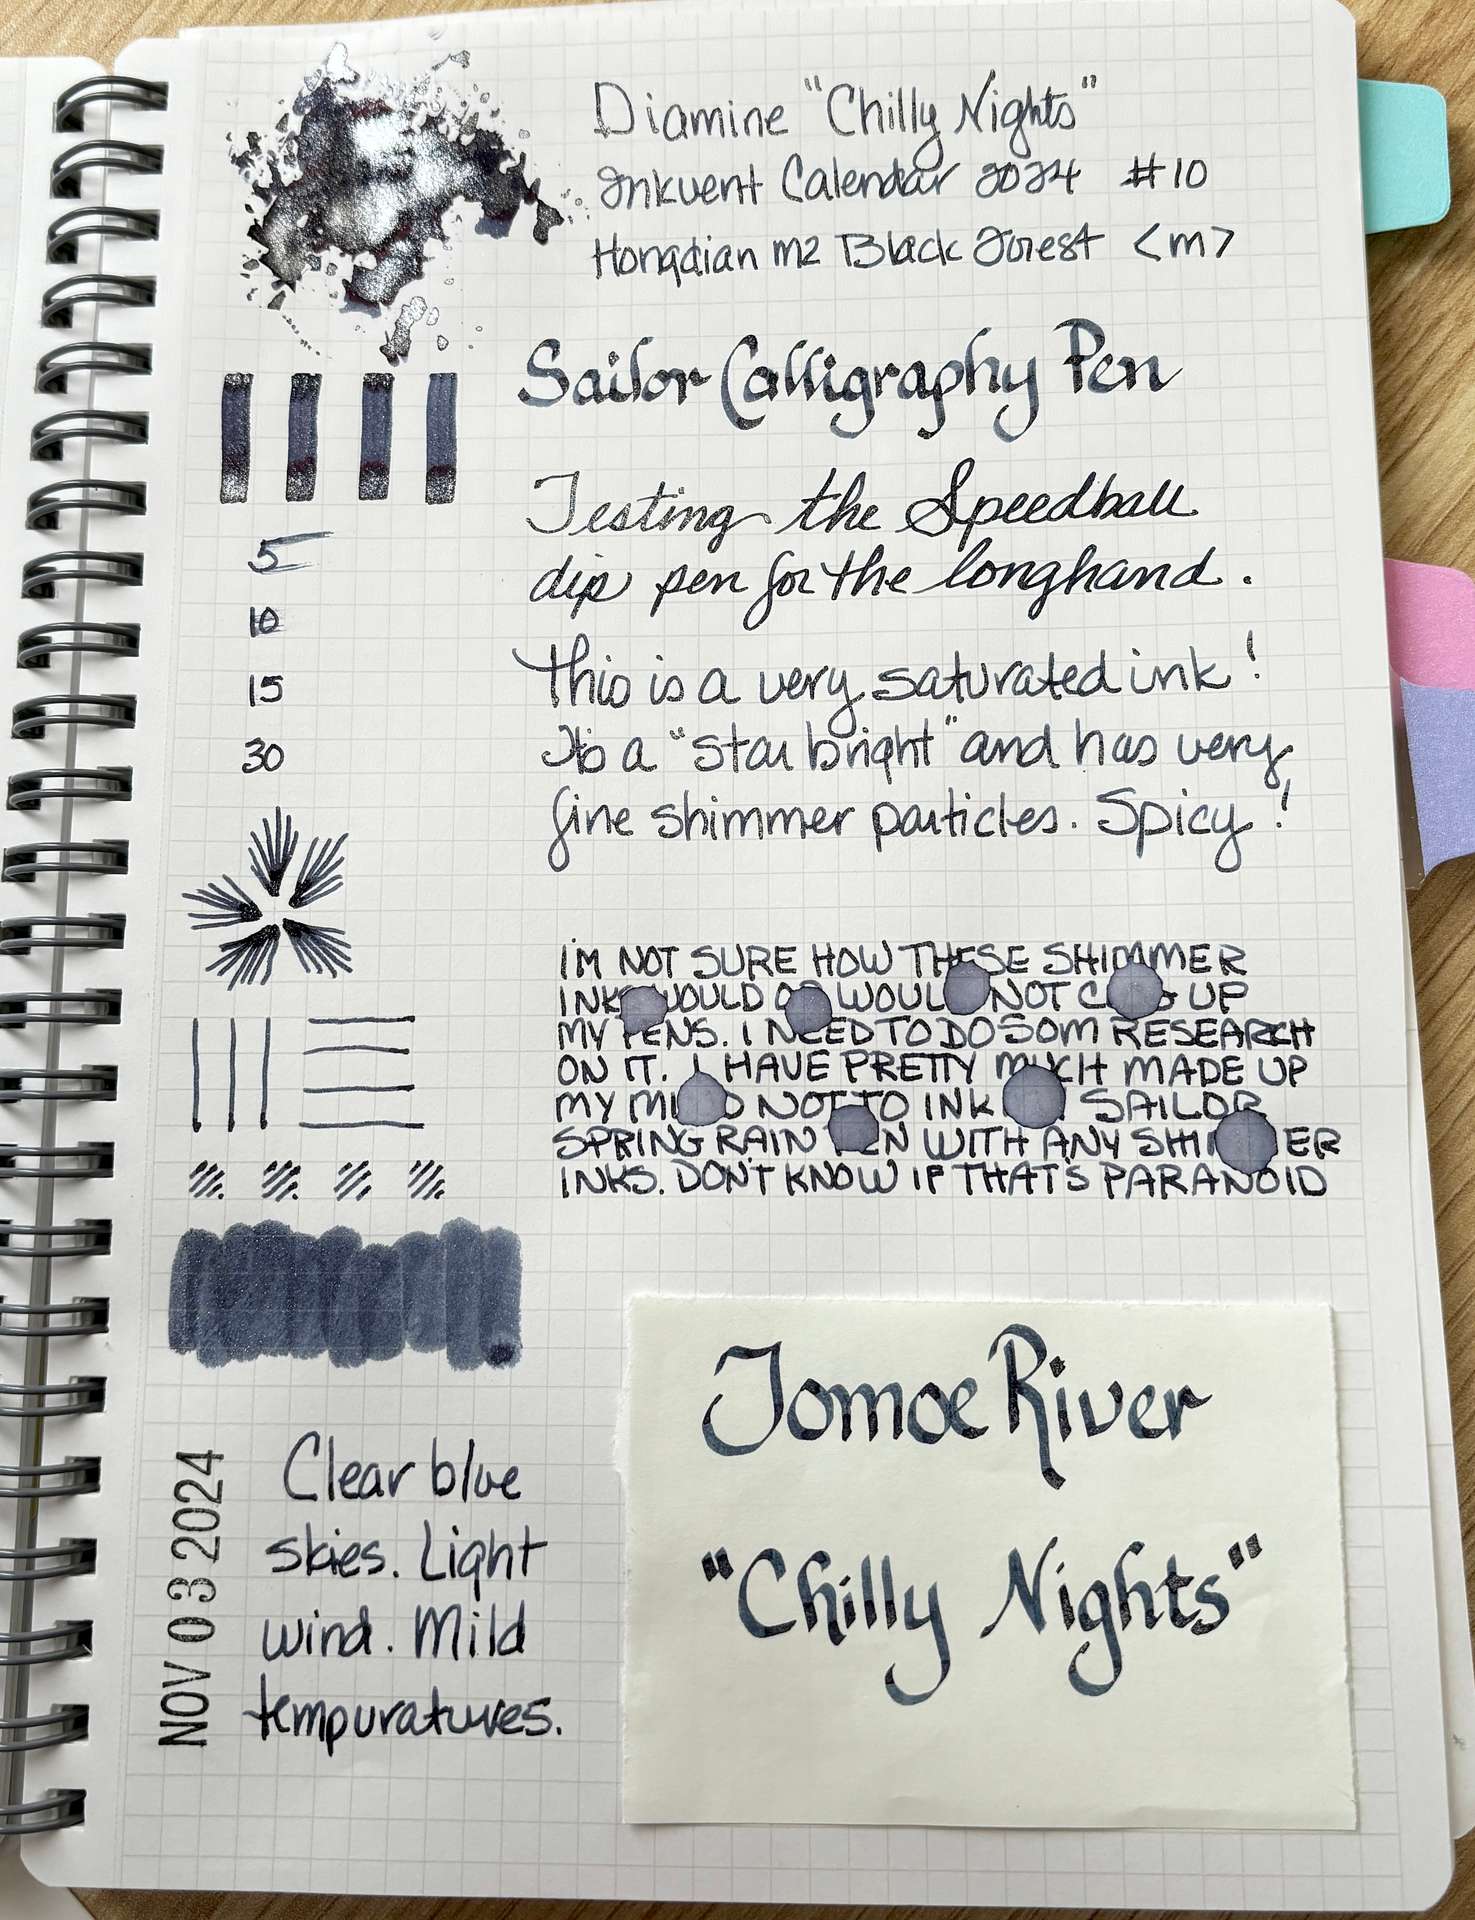 Diamine "Chilly Nights"
Inkvent Calendar 2024 #10
Hongdian M2 Black Forest <M>
Sailor Calligraphy Pen
Testing the Speedball
dip pen for the longhand.
This is a very saturated ink!
It's a "star bright" and has very
fine shimmer particles. Spicy!
5
10
15
30
I'M NOT SURE HOW THESE SHIMMER
INKS WOULD OR WOULD NOT CLOG UP
MY PENS. I NEED TO DO SOM RESEARCH
ON IT. I HAVE PRETTY MUCH MADE UP
MY MIND NOT TO INK SAILOR
SPRING RAIN PEN WITH ANY SHIMMER
INKS. DON'T KNOW IF THAT'S PARANOID
NOV 03 2024
Clear blue
skies. Light
wind. Mild
tempuratures.
Tomoe River
"Chilly Nights"